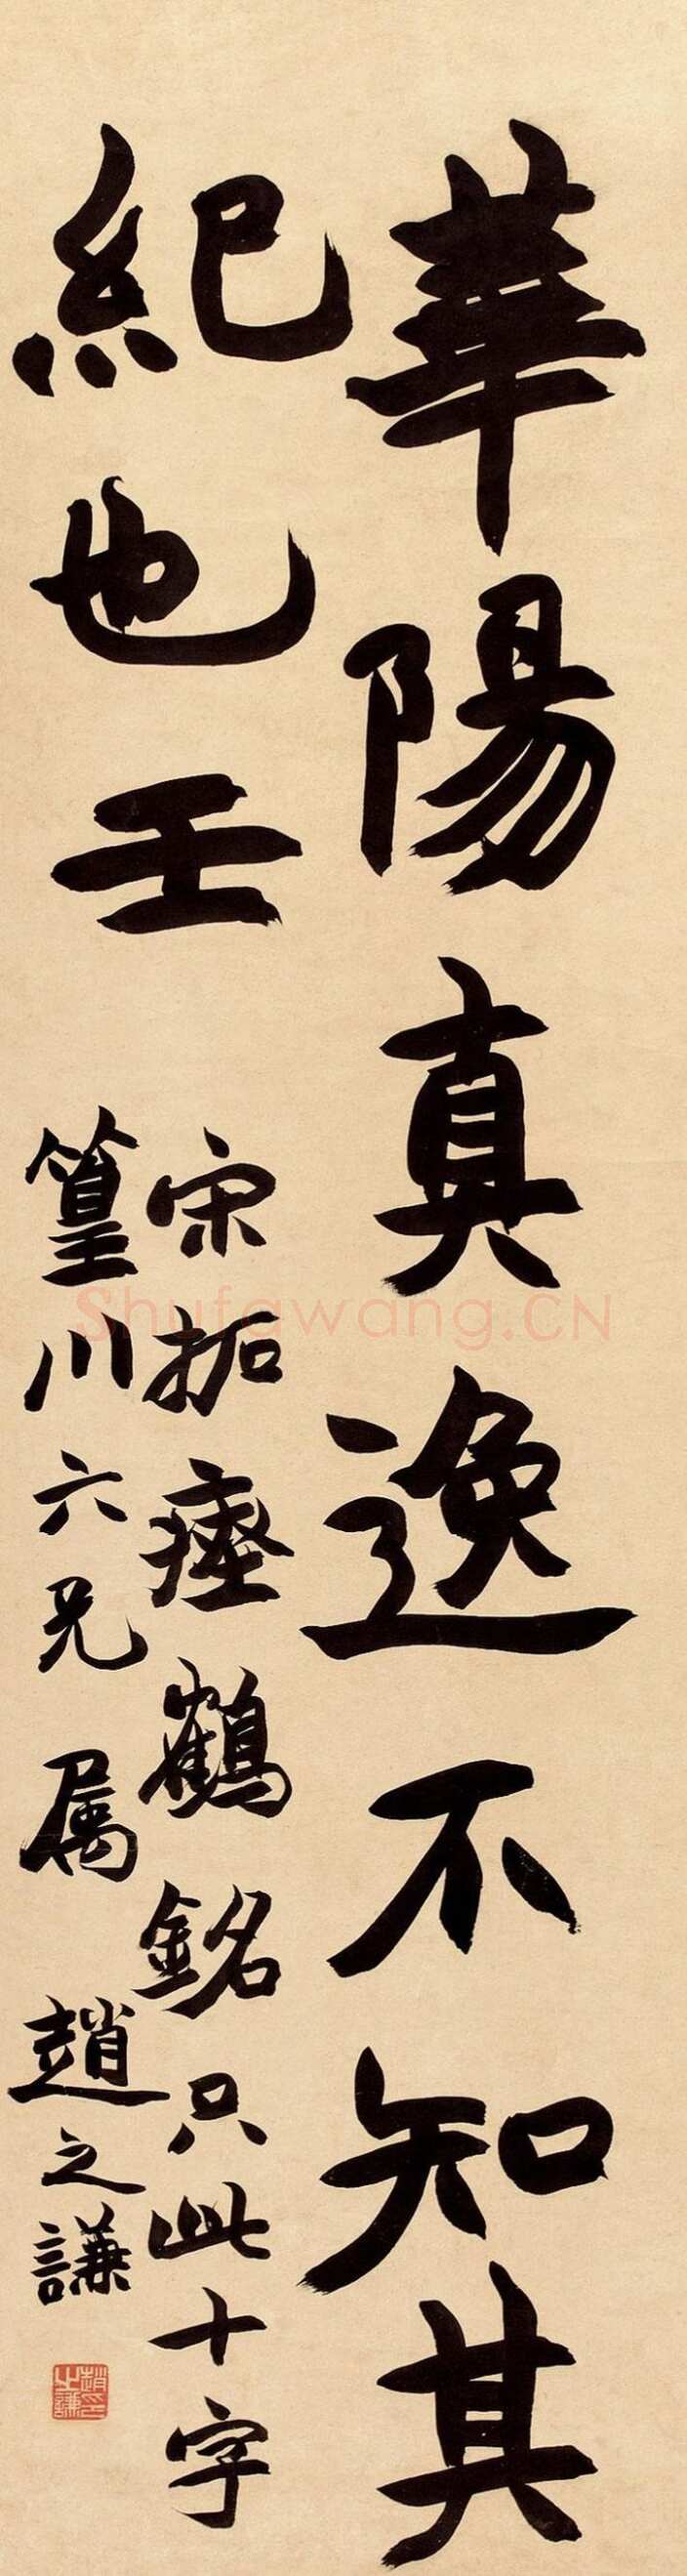 華陽真逸不知其
紀也壬
宋拓瘞鶴銘只此十字
篁川六兄属
趙之謙
趙之謙印
Shufawang.CN